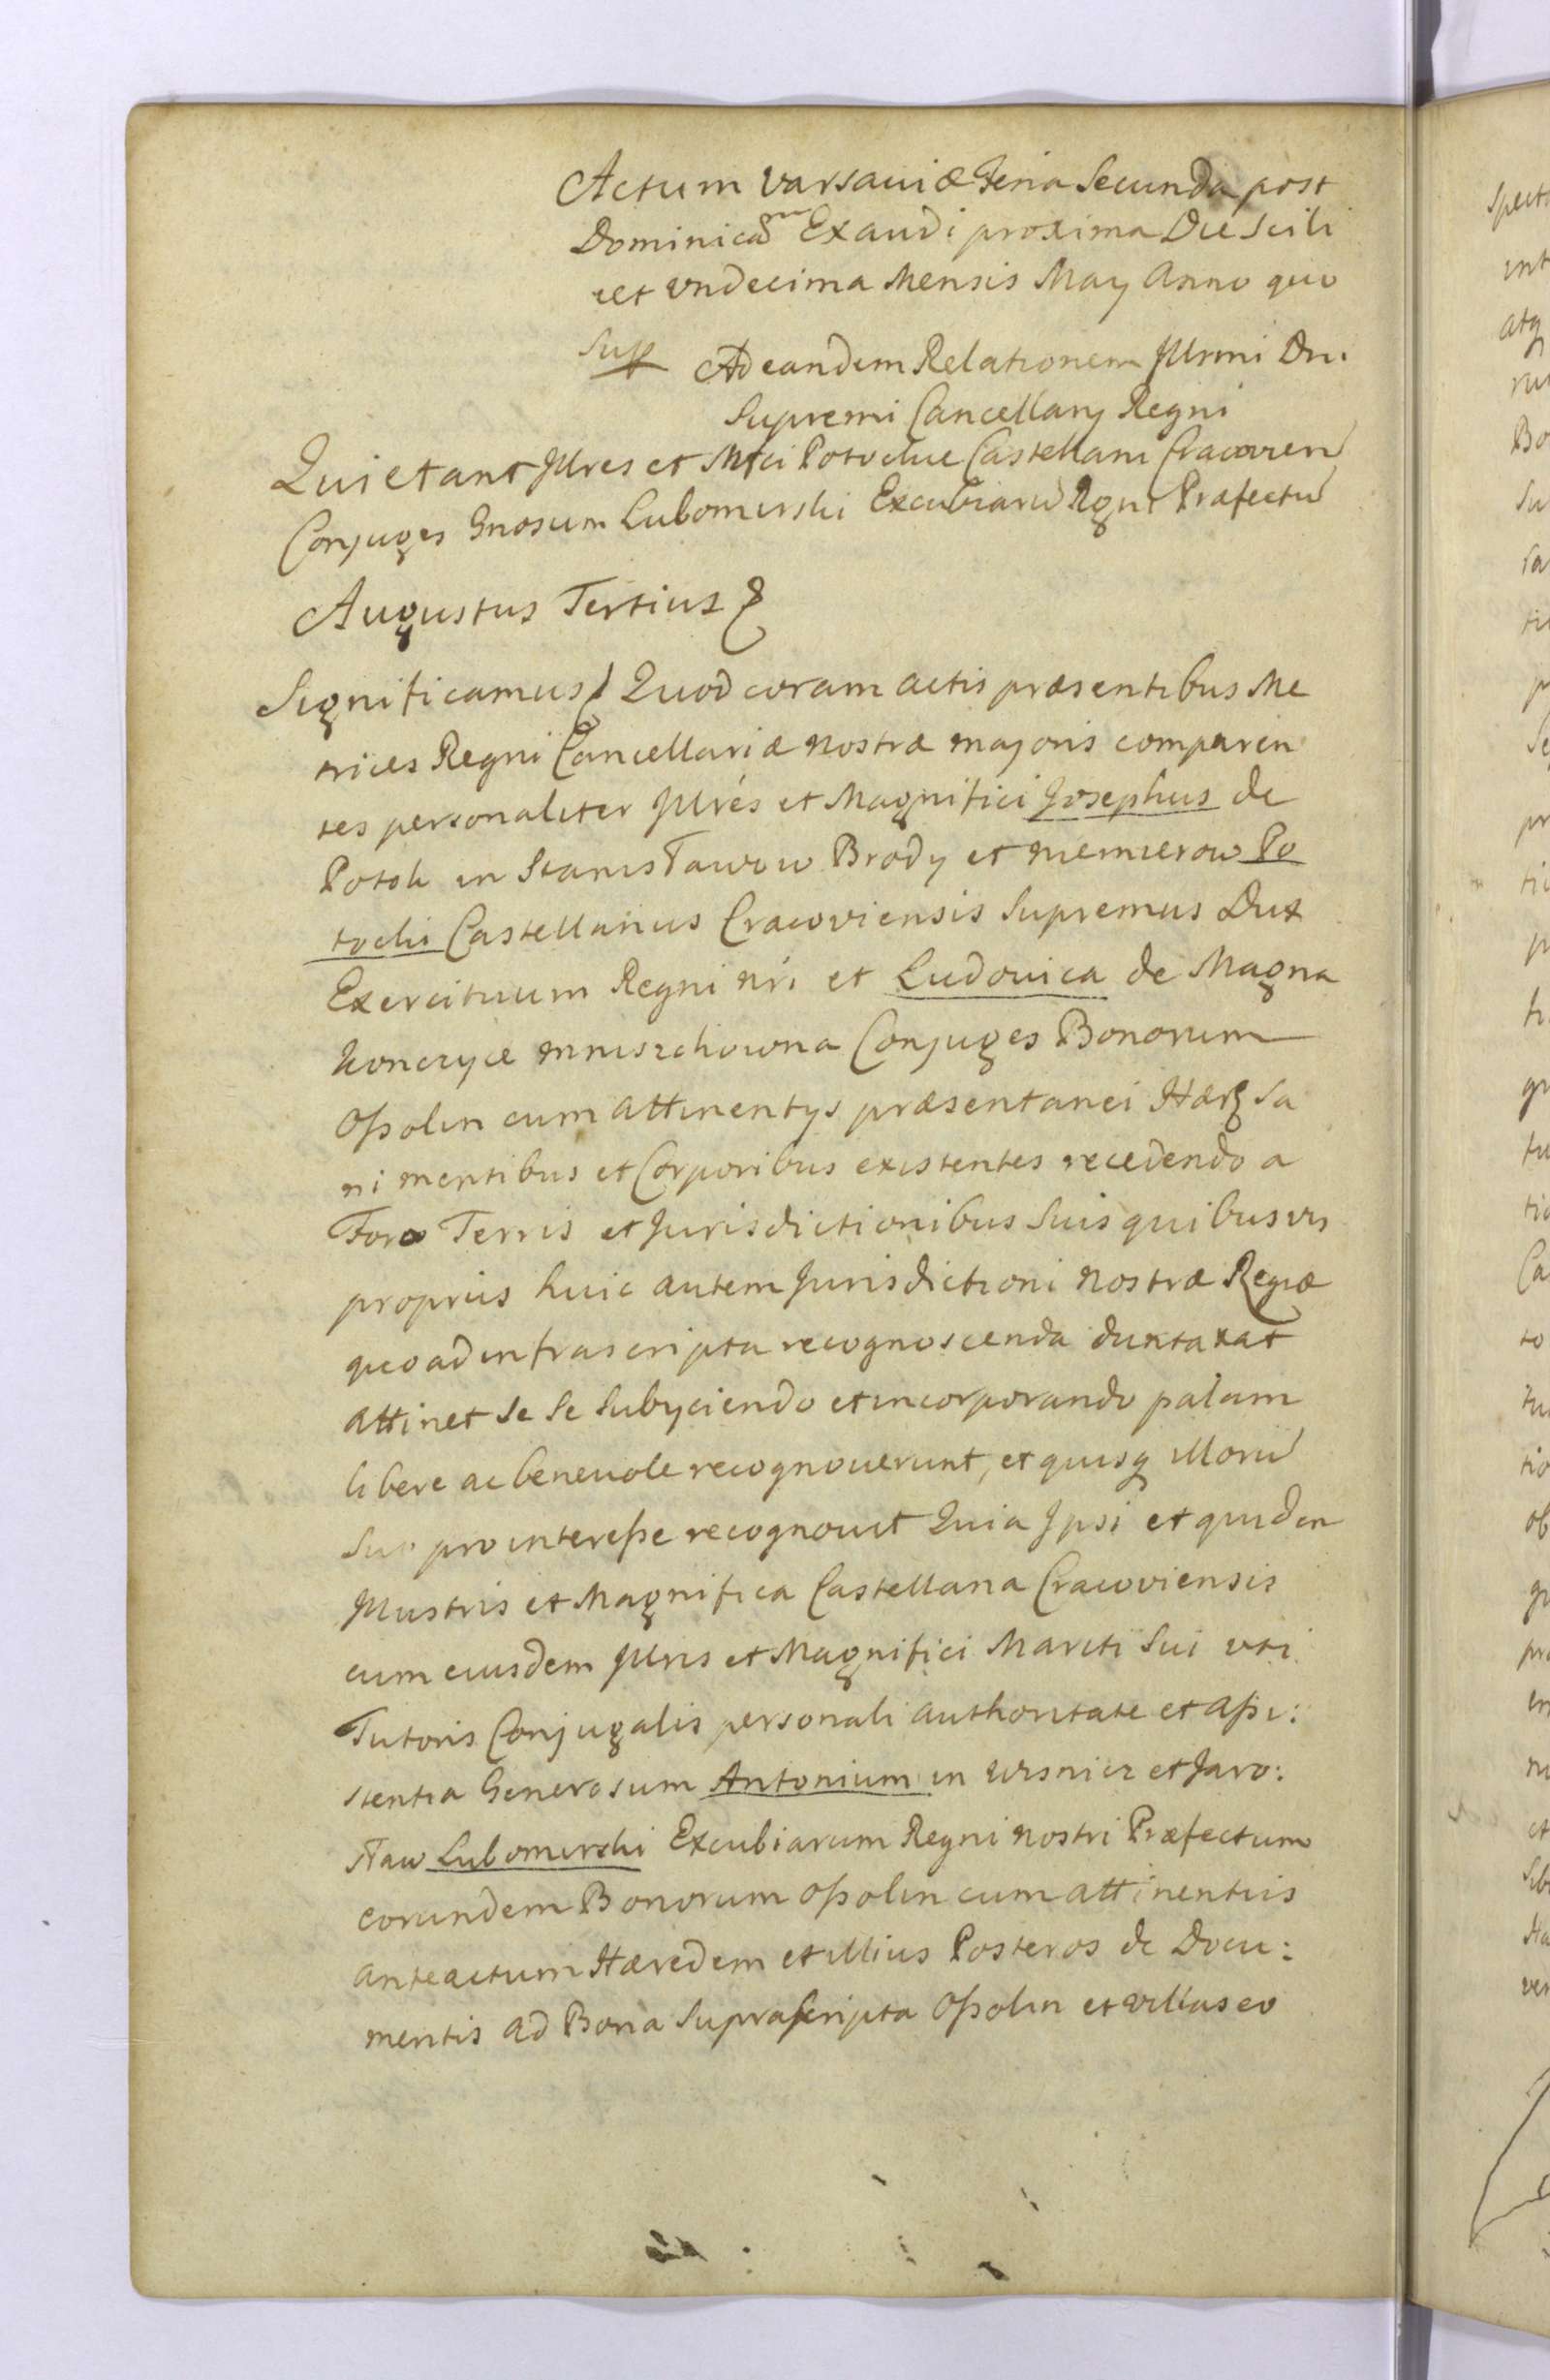 Actum Varsaviæ Feria Secunda post
Dominicam Exaudi proxima Die Scili
cet Undecima Mensis May Anno quo
Sup Ad eandem Relationem Jllrmi Dni
Supremi Cancellarij Regni
Quietant Jllres et Mfci Potockie Castellani Cracovien
Conjuges Gnosum Lubomirski Excubiarũ Rgni Præfectũ
Augustus Tertius &
Significamus & Quod coram actis præsentibus Me
trices Regni Cancellariæ nostræ majoris comparen
tes personaliter Jllrés et Magnifici Josephus de
Potok in Stanisławow Brody et Niemierow Po
tocki Castellanus Cracoviensis Supremus Dux
Exercituum Regni nri et Ludovica de Magna
Konczyce Mniszchowna Conjuges Bonorum
Oſsolin cum attinentijs præsentanei Hærs Sa
ni mentibus et Corporibus existentes recedendo a
Foro Terris et Jurisdictionibus Suis quibusvis
proprijs huic autem Jurisdictioni nostræ Regiæ
quo ad infrascripta recognoscenda duxtaxat
attinet se se Subyciendo et incorporando palam
libere ac benevole recognoverunt, et quisq illorũ
Suo pro intereſse recognovit Quia Jpsi et quidem
Jllustris et Magnifica Castellana Cracoviensis
cum eiusdem Jllris et Magnifici Mariti Sui uti
Tutoris Conjugalis personali authoritate et aſsi:
stentia Generosum Antonium in Wisnicz et Jaro:
sław Lubomirski Excubiarum Regni nostri Præfectum
eorundem Bonorum Oſsolin cum attinentiis
anteactum Hæredem et illius Posteros de Docu:
mentis ad Bona Suprascripta Oſsolin et villas eo